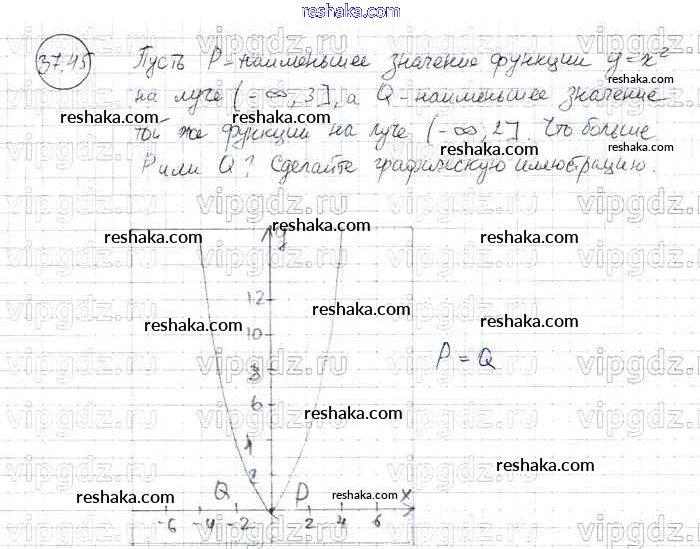 reshaka.com
37.45 Пусть P-наименьшее значение функции y=x²
на луче (-∞, 3], а Q-наименьшее значение
reshaka.com
той же функции на луче (-∞, 2]. Что больше
P или Q? Сделайте графическую иллюстрацию.
reshaka.com
reshaka.com
reshaka.com
reshaka.com
vipgdz.ru
y
12
reshaka.com
reshaka.com
reshaka.com
10
P = Q
8
6
reshaka.com
4
2
reshaka.com
Q
P
reshaka.com
x
reshaka.com
-6 -4 -2 2 4 6
vipgdz.ru